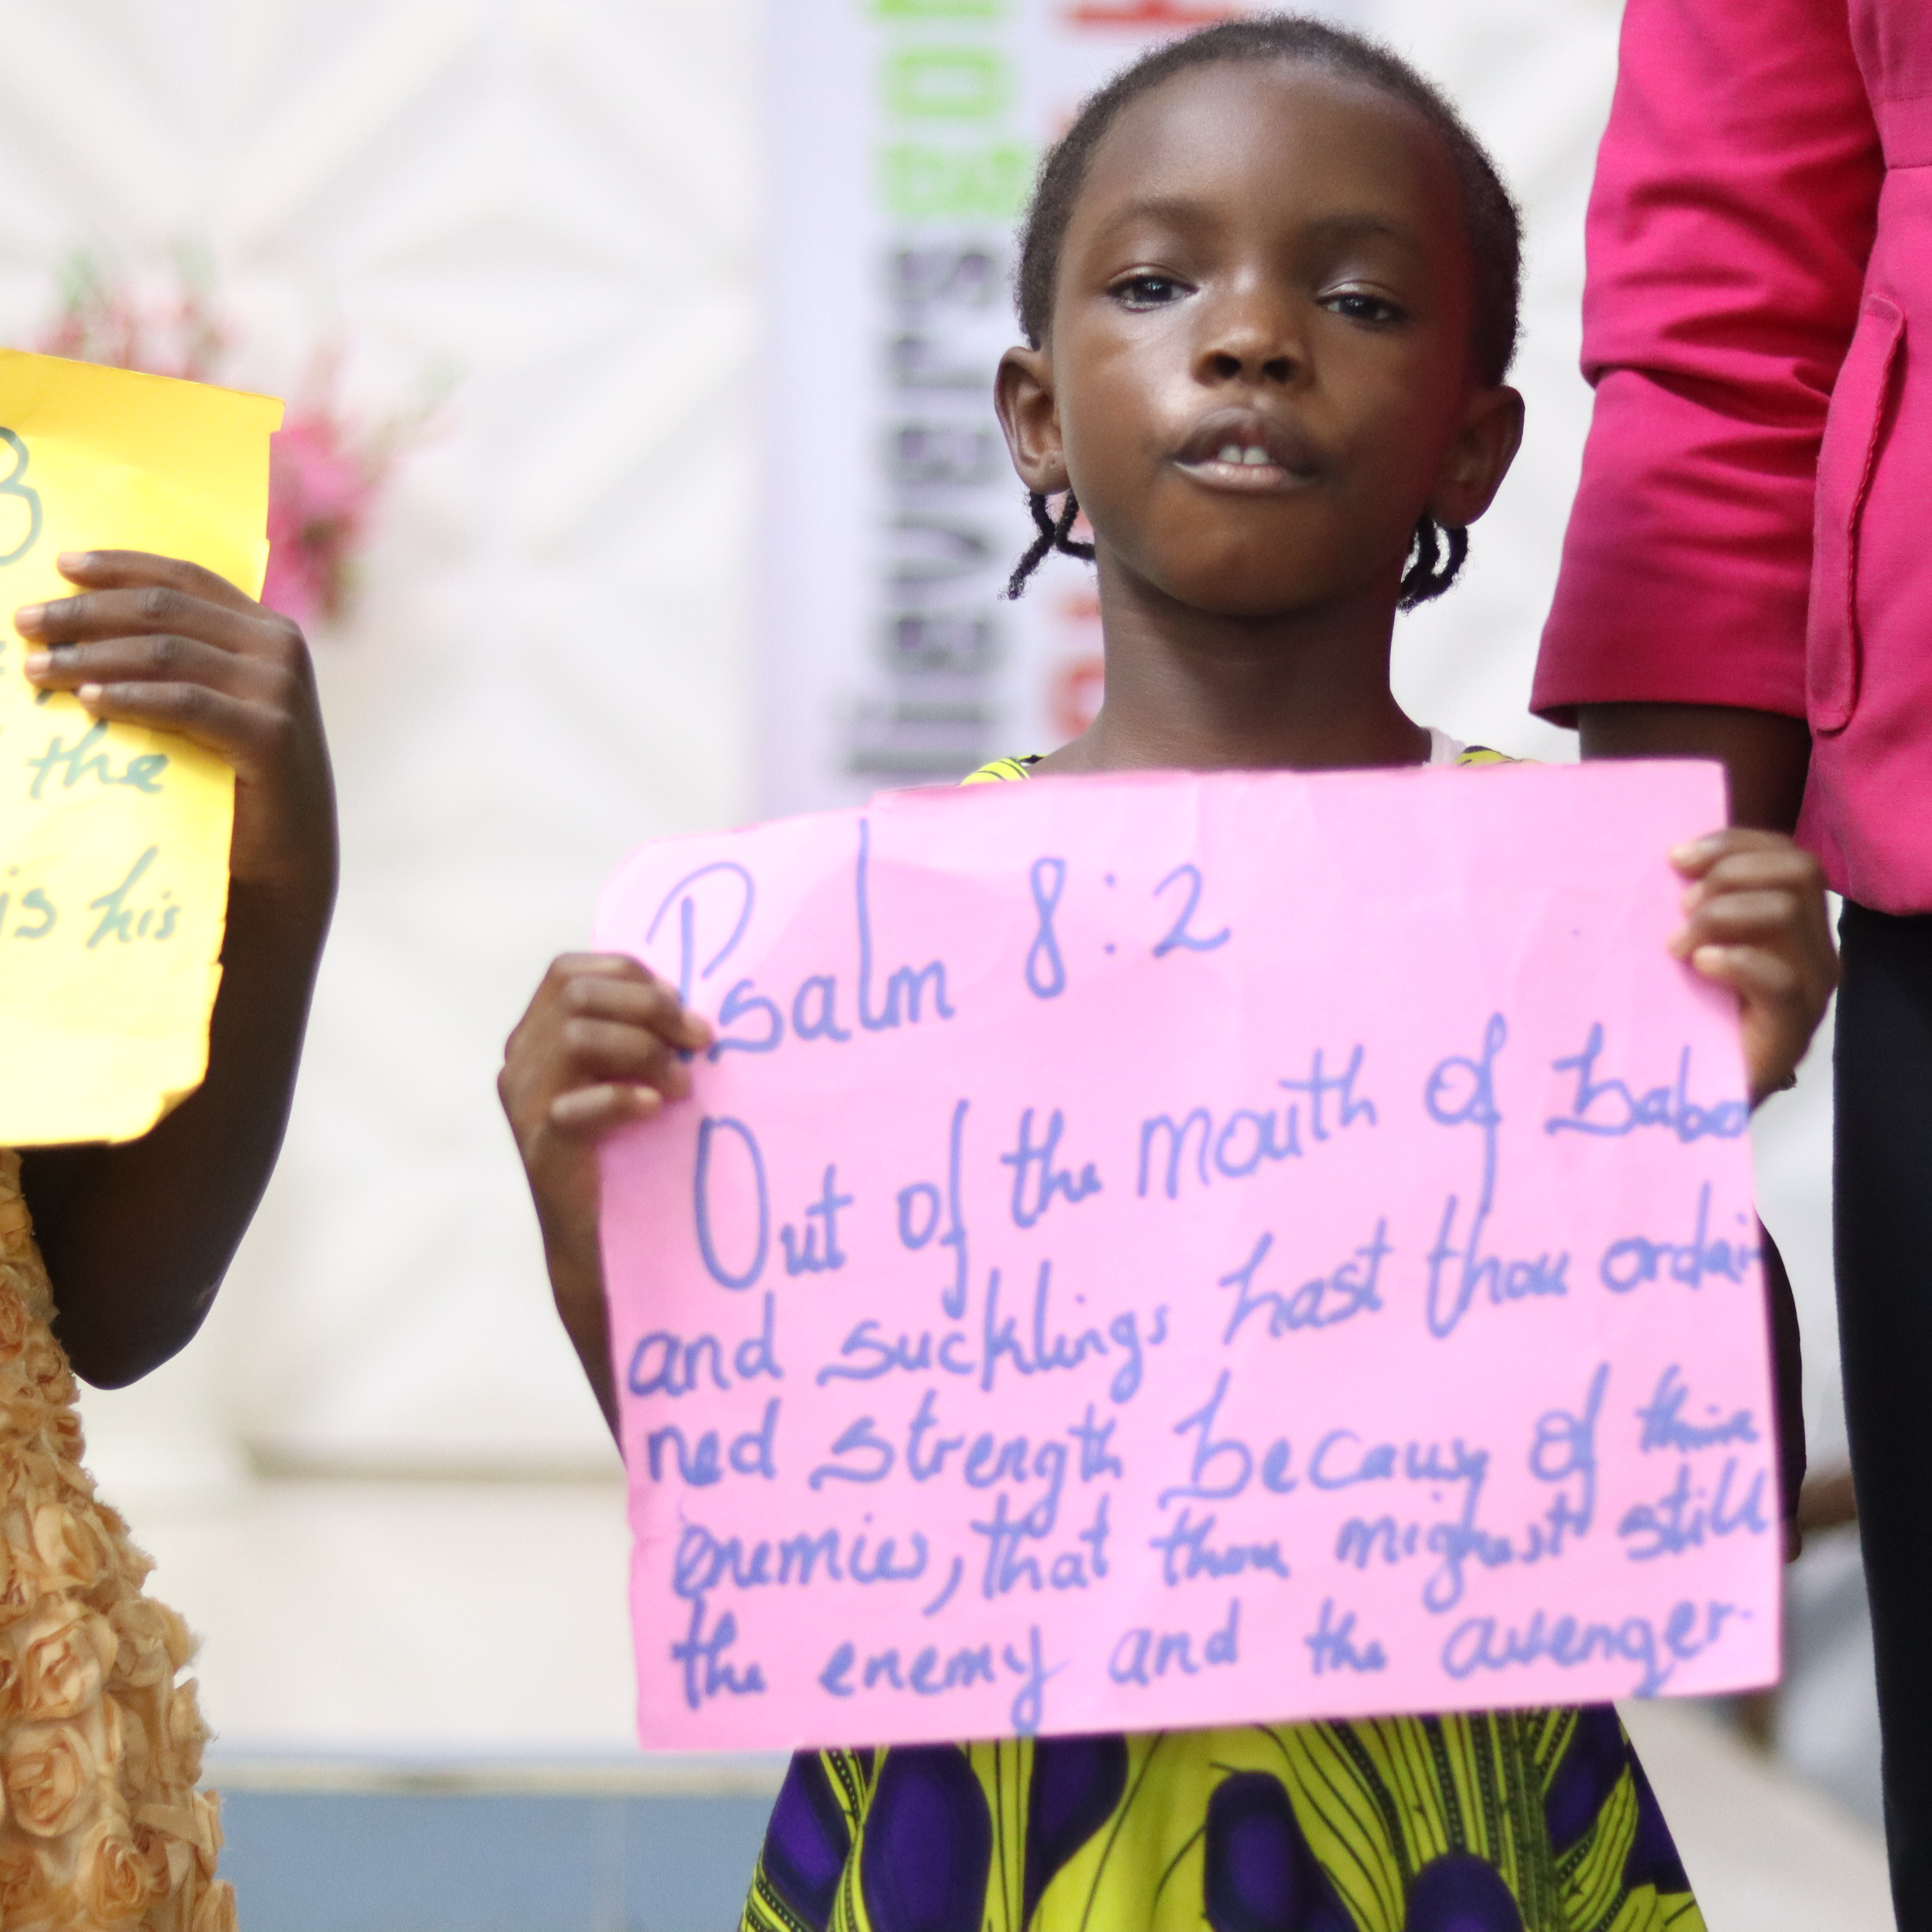 3
the
is his
Psalm 8:2
Out of the mouth of babes
and sucklings hast thou ordai
ned strength because of thine
enemies, that thou mighest still
the enemy and the avenger.
lievers